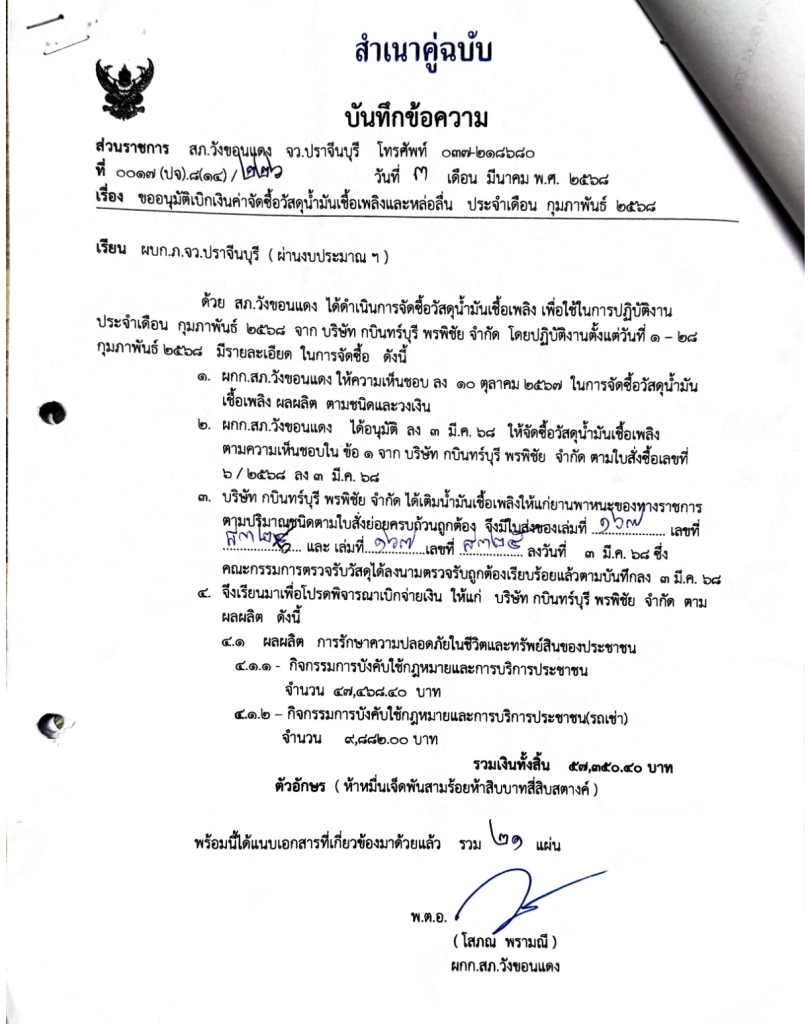 สำเนาคู่ฉบับ
บันทึกข้อความ
ส่วนราชการ สภ.วังขอนแดง จว.ปราจีนบุรี โทรศัพท์ ๐๓๗-๒๑๘๖๘๐
ที่ ๐๐๑๗ (ปจ).๘(๑๔) / ๒๒๖ วันที่ ๓ เดือน มีนาคม พ.ศ. ๒๕๖๘
เรื่อง ขออนุมัติเบิกเงินค่าจัดซื้อวัสดุน้ำมันเชื้อเพลิงและหล่อลื่น ประจำเดือน กุมภาพันธ์ ๒๕๖๘
เรียน ผบก.ภ.จว.ปราจีนบุรี ( ผ่านงบประมาณ ฯ )
ด้วย สภ.วังขอนแดง ได้ดำเนินการจัดซื้อวัสดุน้ำมันเชื้อเพลิง เพื่อใช้ในการปฏิบัติงาน
ประจำเดือน กุมภาพันธ์ ๒๕๖๘ จาก บริษัท กบินทร์บุรี พรพิชัย จำกัด โดยปฏิบัติงานตั้งแต่วันที่ ๑ – ๒๘
กุมภาพันธ์ ๒๕๖๘ มีรายละเอียด ในการจัดซื้อ ดังนี้
๑. ผกก.สภ.วังขอนแดง ให้ความเห็นชอบ ลง ๑๐ ตุลาคม ๒๕๖๗ ในการจัดซื้อวัสดุน้ำมัน
เชื้อเพลิง ผลผลิต ตามชนิดและวงเงิน
๒. ผกก.สภ.วังขอนแดง ได้อนุมัติ ลง ๓ มี.ค. ๖๘ ให้จัดซื้อวัสดุน้ำมันเชื้อเพลิง
ตามความเห็นชอบใน ข้อ ๑ จาก บริษัท กบินทร์บุรี พรพิชัย จำกัด ตามใบสั่งซื้อเลขที่
๖ / ๒๕๖๘ ลง ๓ มี.ค. ๖๘
๓. บริษัท กบินทร์บุรี พรพิชัย จำกัด ได้เติมน้ำมันเชื้อเพลิงให้แก่ยานพาหนะของทางราชการ
ตามปริมาณชนิดตามใบสั่งย่อยครบถ้วนถูกต้อง จึงมีใบส่งของเล่มที่ ๑๖๗ เลขที่
และ เล่มที่ ๑๖๗ เลขที่ ลงวันที่ ๓ มี.ค. ๖๘ ซึ่ง
คณะกรรมการตรวจรับวัสดุได้ลงนามตรวจรับถูกต้องเรียบร้อยแล้วตามบันทึกลง ๓ มี.ค. ๖๘
๔. จึงเรียนมาเพื่อโปรดพิจารณาเบิกจ่ายเงิน ให้แก่ บริษัท กบินทร์บุรี พรพิชัย จำกัด ตาม
ผลผลิต ดังนี้
๔.๑ ผลผลิต การรักษาความปลอดภัยในชีวิตและทรัพย์สินของประชาชน
๔.๑.๑ - กิจกรรมการบังคับใช้กฎหมายและการบริการประชาชน
จำนวน ๔๗,๔๖๘.๔๐ บาท
๔.๑.๒ – กิจกรรมการบังคับใช้กฎหมายและการบริการประชาชน(รถเช่า)
จำนวน ๙,๘๘๒.๐๐ บาท
รวมเงินทั้งสิ้น ๕๗,๓๕๐.๔๐ บาท
ตัวอักษร ( ห้าหมื่นเจ็ดพันสามร้อยห้าสิบบาทสี่สิบสตางค์ )
พร้อมนี้ได้แนบเอกสารที่เกี่ยวข้องมาด้วยแล้ว รวม ๒๑ แผ่น
พ.ต.อ.
( โสภณ พรามณี )
ผกก.สภ.วังขอนแดง